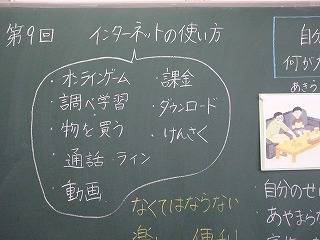 第9回 インターネットの使い方
・オンラインゲーム
・調べ学習
・物を買う
・通話・ライン
・動画
・課金
・ダウンロード
・けんさく
なくてはならない
楽しい 便利
自分
何が
あきら
・自分のせい
・あやまらな